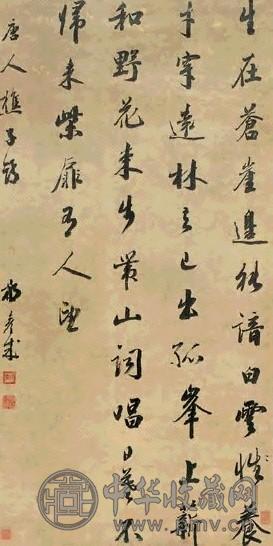 生在蒼崖邊能諳白雲性養
才穿遠林去已出孤峯上薪
和野花束步帶山詞唱日暮不
歸來柴扉有人望
唐人樵子詩
中华收藏网